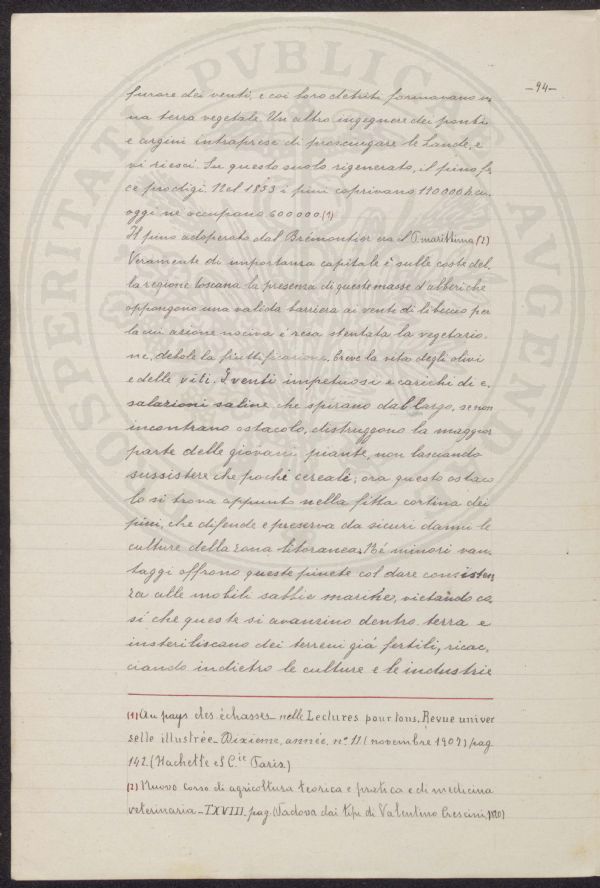 -94-
furore dei venti, e coi loro detriti formavano u
na terra vegetale. Un altro ingegnere dei ponti
e argini intraprese di prosciugare le Lande, e
vi riescì. Su questo suolo rigenerato, il pino fe
ce prodigi. Nel 1853 i pini coprivano 120 000 h.
oggi ne occupano 600 000 (1)
Il pino adoperato dal Brémontier era il P. marittima (2)
Veramente di importanza capitale è sulle coste del
la regione toscana la presenza di queste masse d'alberi che
oppongono una valida barriera ai venti di libeccio per
la cui azione nociva è resa stentata la vegetazio
ne, debole la fruttificazione, breve la vita degli olivi
e delle viti. I venti impetuosi e carichi di e
salazioni saline che spirano dal largo, se non
incontrano ostacolo, distruggono la maggior
parte delle giovani piante, non lasciando
sussistere che pochi cereali; ora questo ostaco
lo si trova appunto nella fitta cortina dei
pini, che difende e preserva da sicuri danni le
culture della zona litoranea. Né minori van
taggi offrono queste pinete col dare consisten
za alle mobili sabbie marine, vietando co
sí che queste si avanzino dentro terra e
insteriliscano dei terreni già fertili, ricac
ciando indietro le culture e le industrie
(1) Au pays des échasses - nelle Lectures pour tous, Revue univer
selle illustrée - Dixieme, année, n.º 11 (novembre 1907) pag
142 (Hachette et C.ie Paris)
(2) Nuovo corso di agricoltura teorica e pratica e di medicina
veterinaria - T. XVIII. pag. (Padova dai tipi di Valentino Crescini, 1820)
PVBLICAE
PROSPERITATI
AVGENDAE